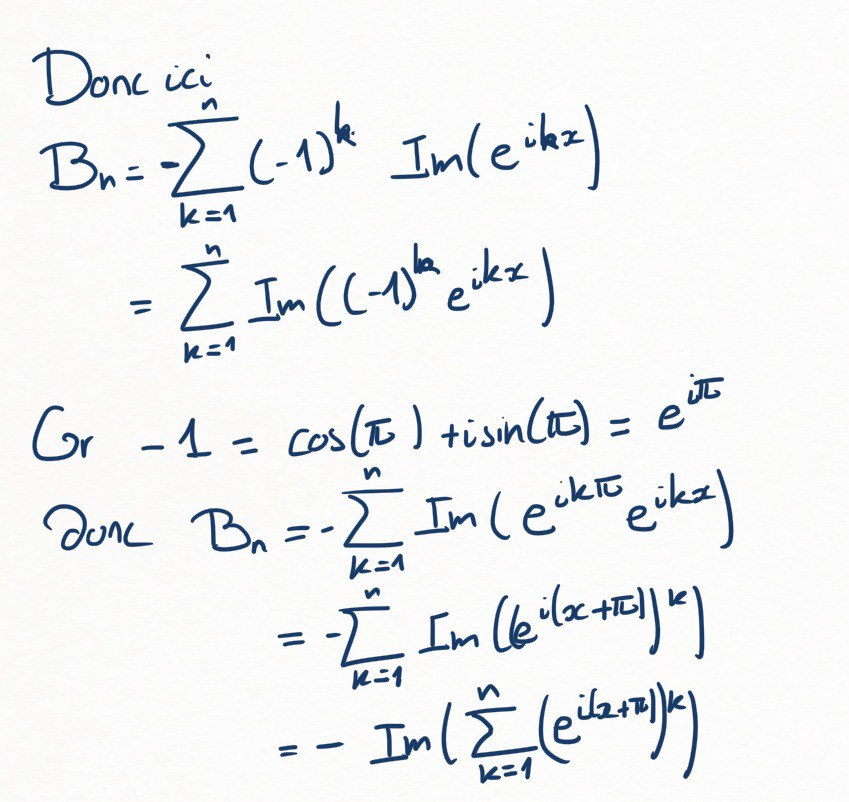 Donc ici
Bₙ = -∑_{k=1}^{n} (-1)^k Im(e^{ikx})
= ∑_{k=1}^{n} Im((-1)^k e^{ikx})
Or -1 = cos(π) + i sin(π) = e^{iπ}
donc Bₙ = -∑_{k=1}^{n} Im(e^{ikπ} e^{ikx})
= -∑_{k=1}^{n} Im((e^{i(x+π)})^k)
= - Im(∑_{k=1}^{n} (e^{i(x+π)})^k)